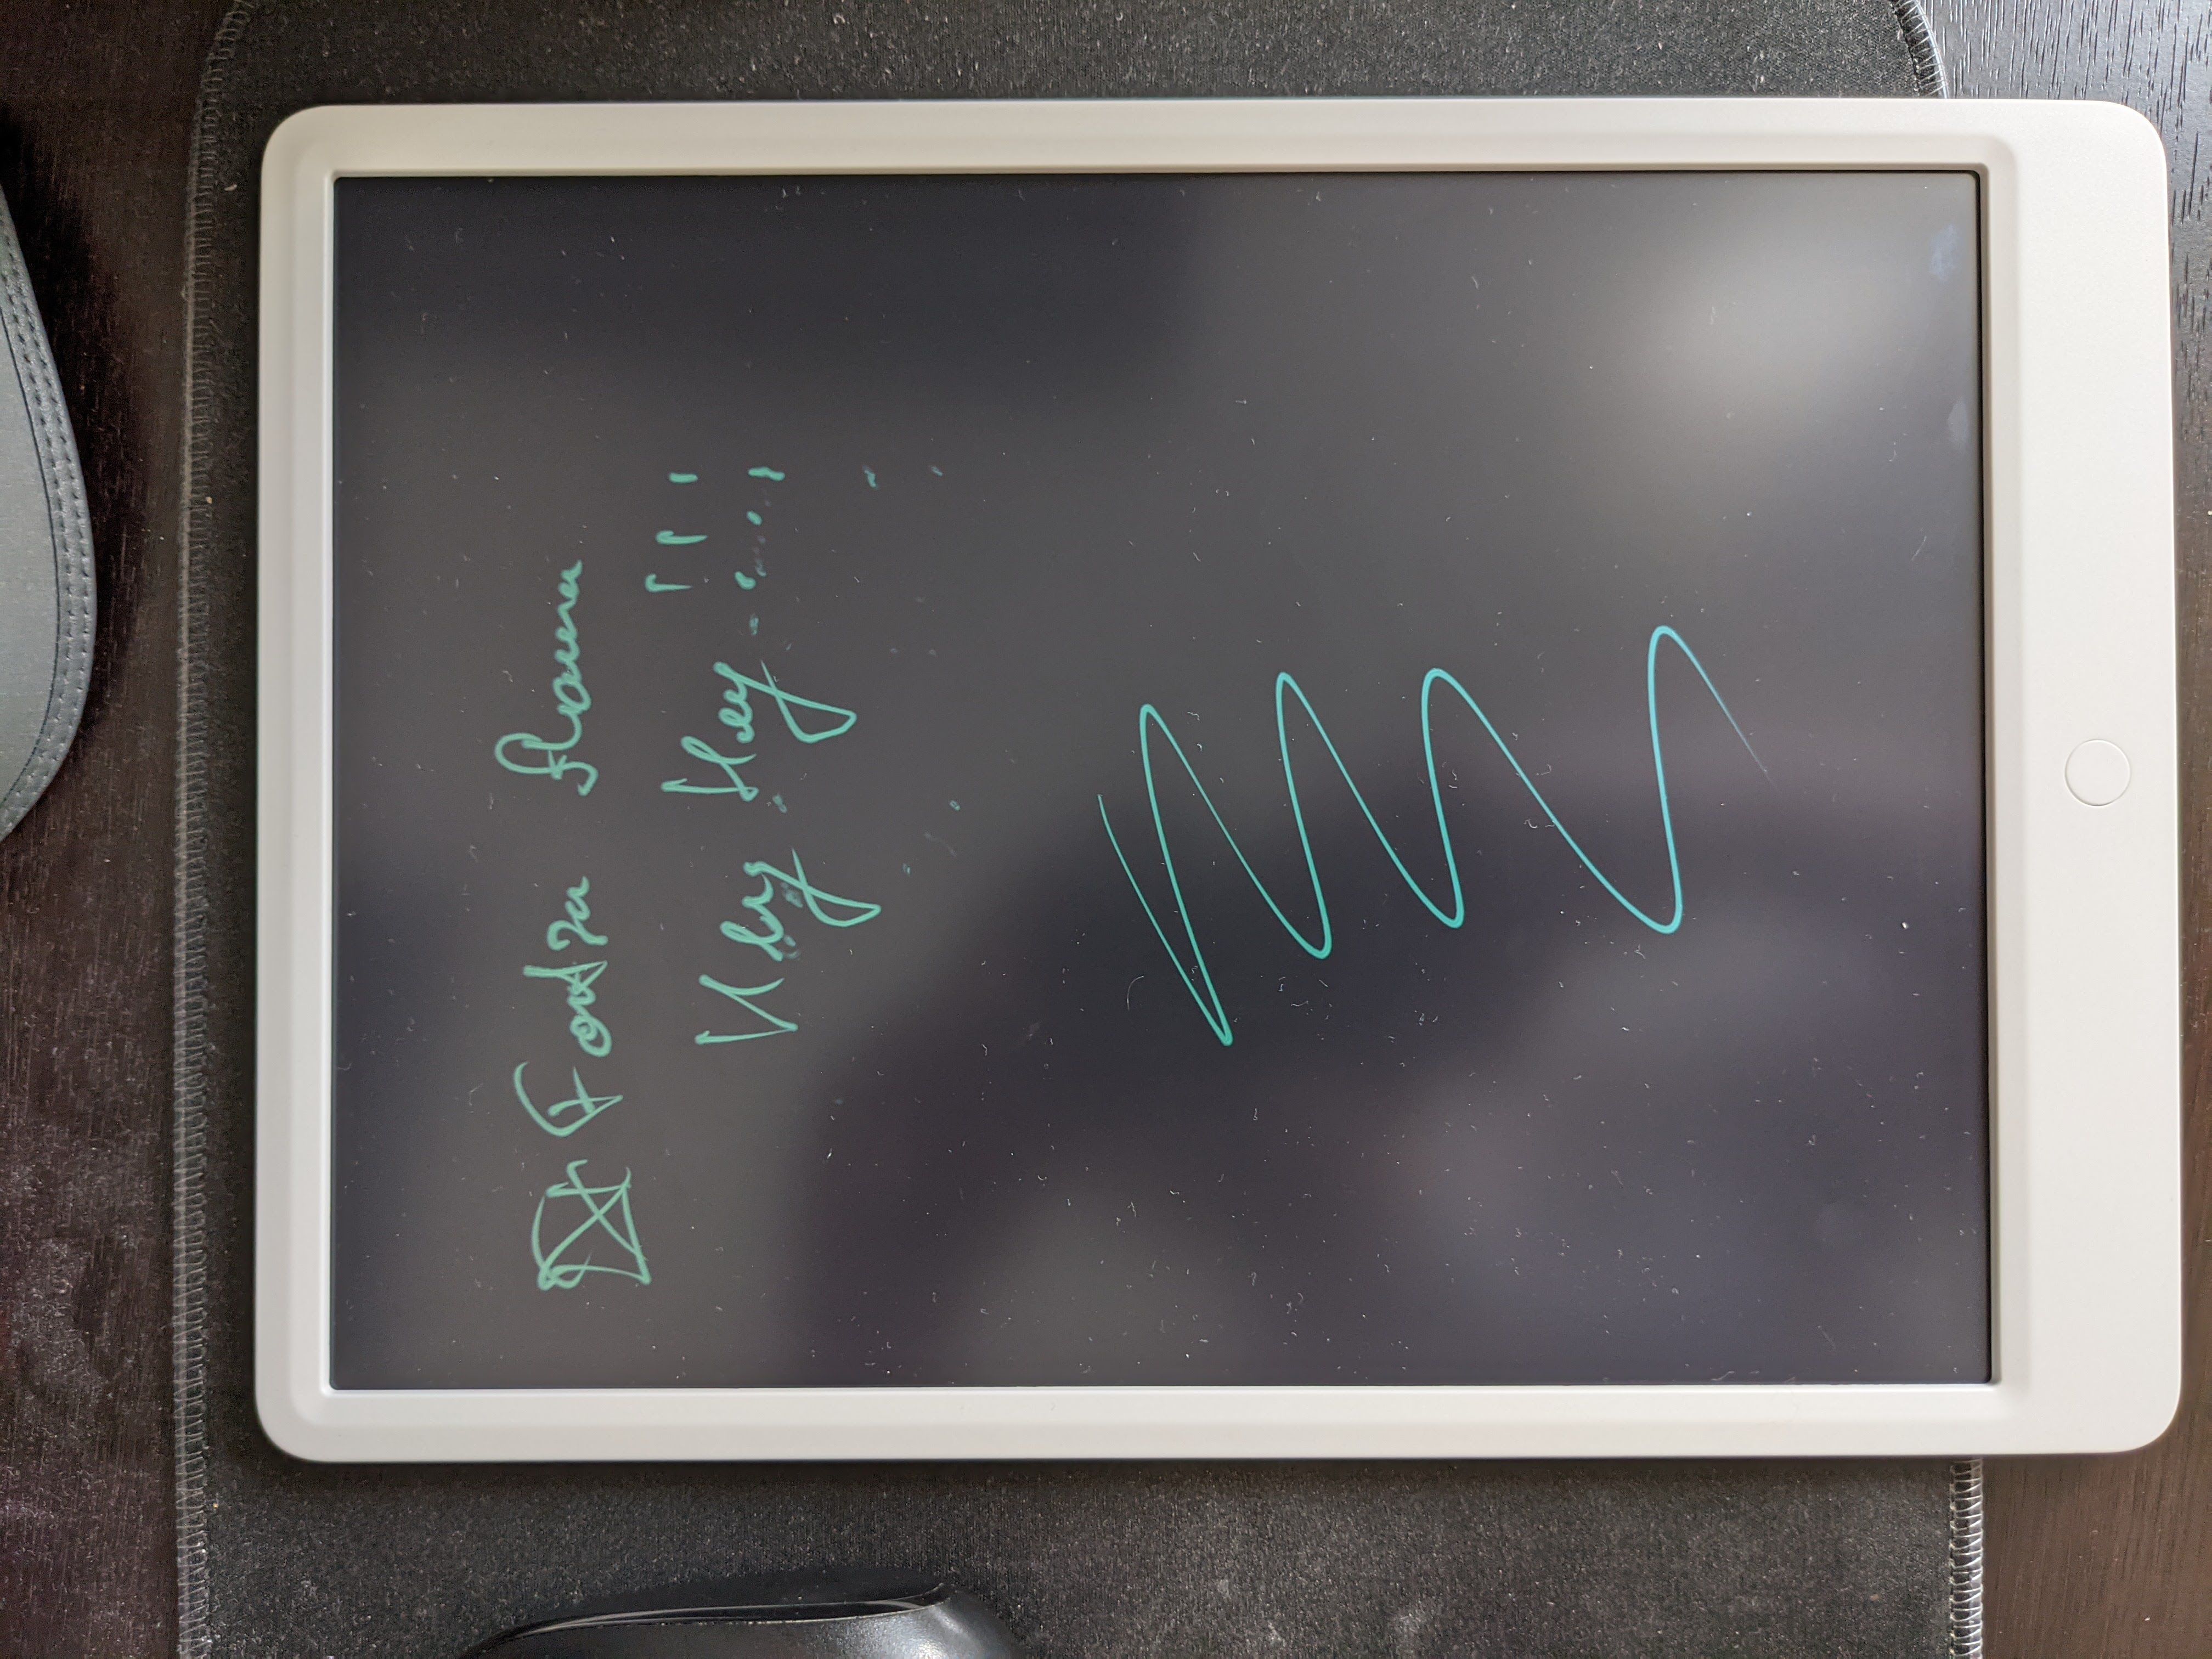 ☒ Forza Roma
Hey Hey !!!